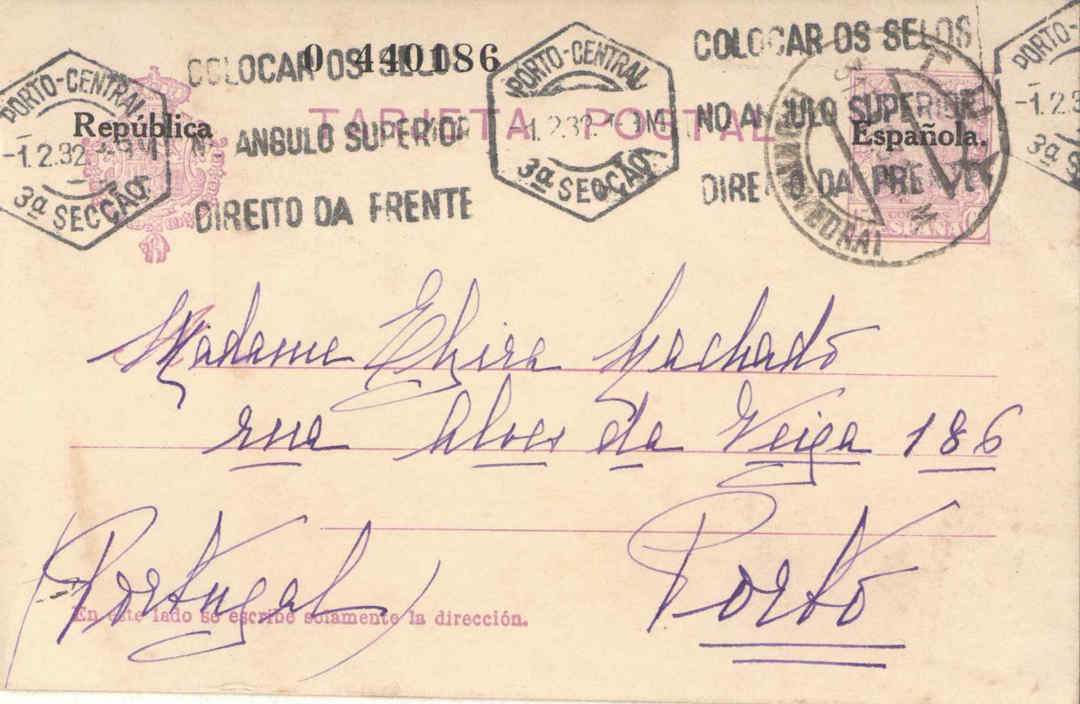 0 440186
TARJETA POSTAL
República Española.
COLOCAR OS SELOS
NO ANGULO SUPERIOR
DIREITO DA FRENTE
PORTO-CENTRAL
-1.2.32
3ª SECÇÃO
PORTO-CENTRAL
1.2.32
3ª SECÇÃO
COLOCAR OS SELOS
NO ANGULO SUPERIOR
DIREITO DA FRENTE
PORTO-
-1.2.3
3ª SE
ESPAÑA
Madame Elzira Machado
rua Alves da Veiga 186
Porto
(Portugal)
En este lado se escribe solamente la dirección.